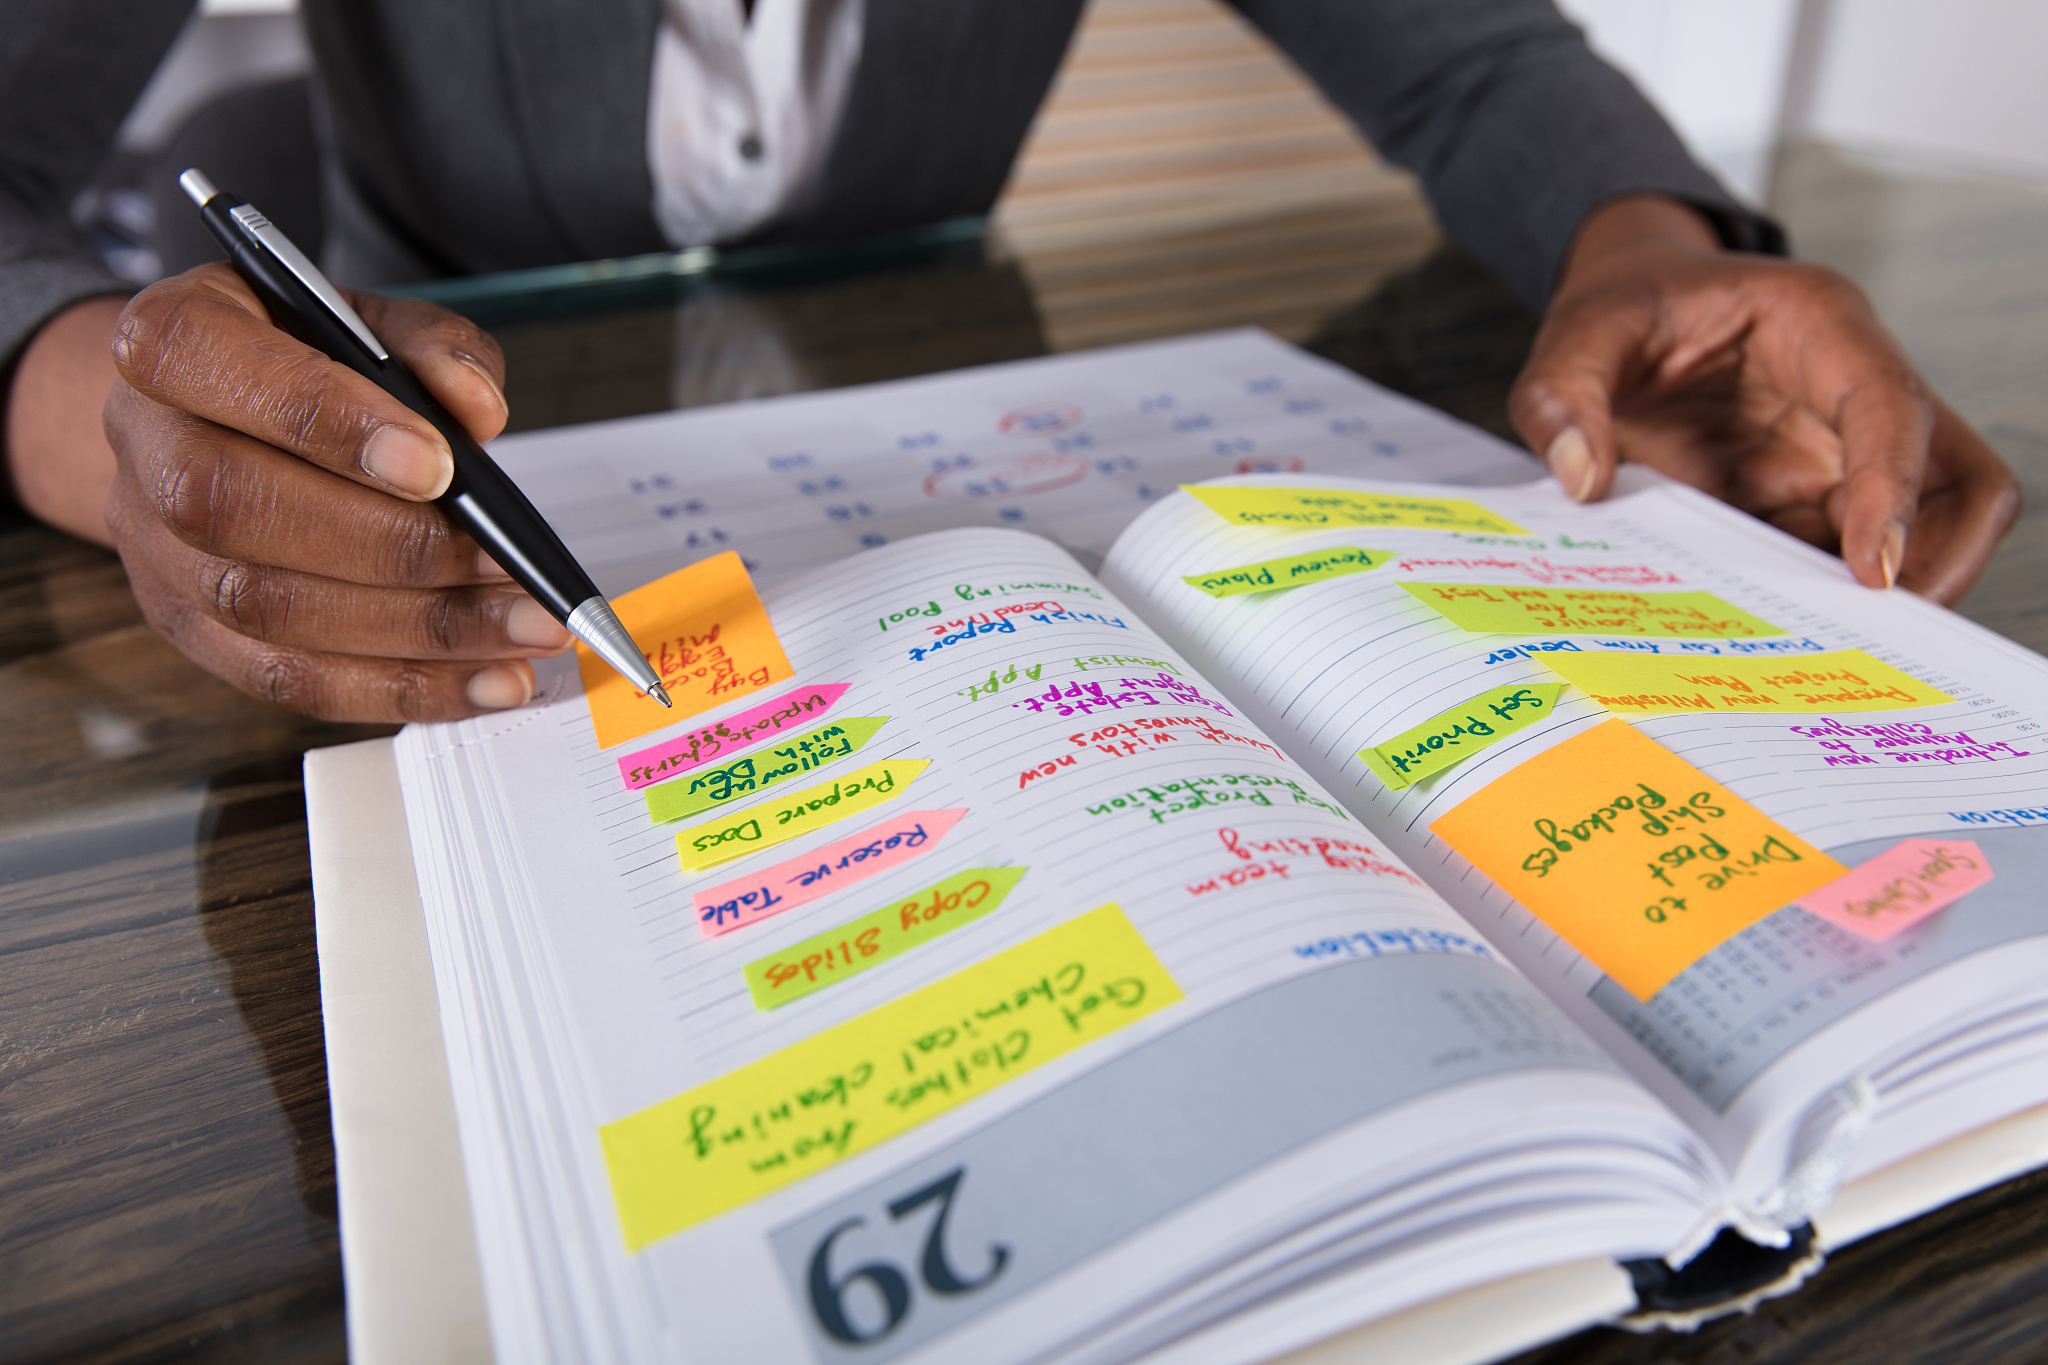 29
Get Clothes
from
Chemical cleaning
Copy Slides
Reserve Table
Prepare Docs
Follow up
with Dev
Update Charts
Buy
Bacon
Eggs
Milk
meeting
Weekly team
New Project
Presentation
Lunch with new
Investors
Real Estate
Agent Appt.
Dentist
Appt.
Finish Report
Deadline
Swimming Pool
Drive to
Post
Ship
Packages
Introduce new
Manager to
Collegues
Set Priorit
Prepare new Milestone
Project Plan
Pickup Car from Dealer
Select Service
Providers for
Review and Test
Review Plans